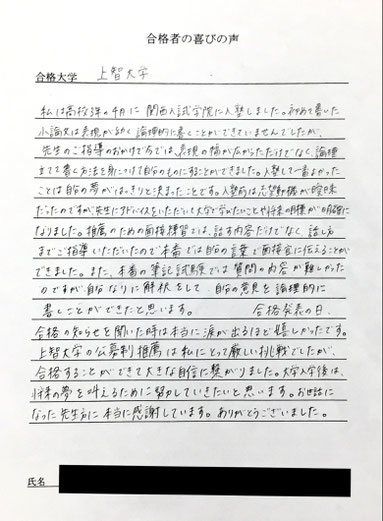 合格者の喜びの声
合格大学 上智大学
私は高校3年の4月に関西入試学院に入塾しました。初めて書いた
小論文は表現が幼く論理的に書くことができていませんでしたが、
先生のご指導のおかげで今では、表現の幅が広がっただけでなく、論理
立てて書く方法を身につけて自分のものにすることができました。入塾して一番よかった
ことは自分の夢がはっきりと決まったことです。入塾前は志望動機が曖昧
だったのですが、先生にアドバイスをいただいて大学で学びたいことや将来の目標が明確に
なりました。推薦のための面接練習では、話す内容だけでなく、話し方
までご指導いただいたので本番では自分の言葉で面接官に伝えることが
できました。また、本番の筆記試験では質問の内容が難しかった
のですが自分なりに解釈をして、自分の意見を論理的に
書くことができたと思います。 合格発表の日、
合格の知らせを聞いた時は本当に涙が出るほど嬉しかったです。
上智大学の公募制推薦は私にとって厳しい挑戦でしたが、
合格することができて大きな自信に繋がりました。大学入学後は、
将来の夢を叶えるために努力していきたいと思います。お世話に
なった先生方に本当に感謝しています。ありがとうございました。
氏名